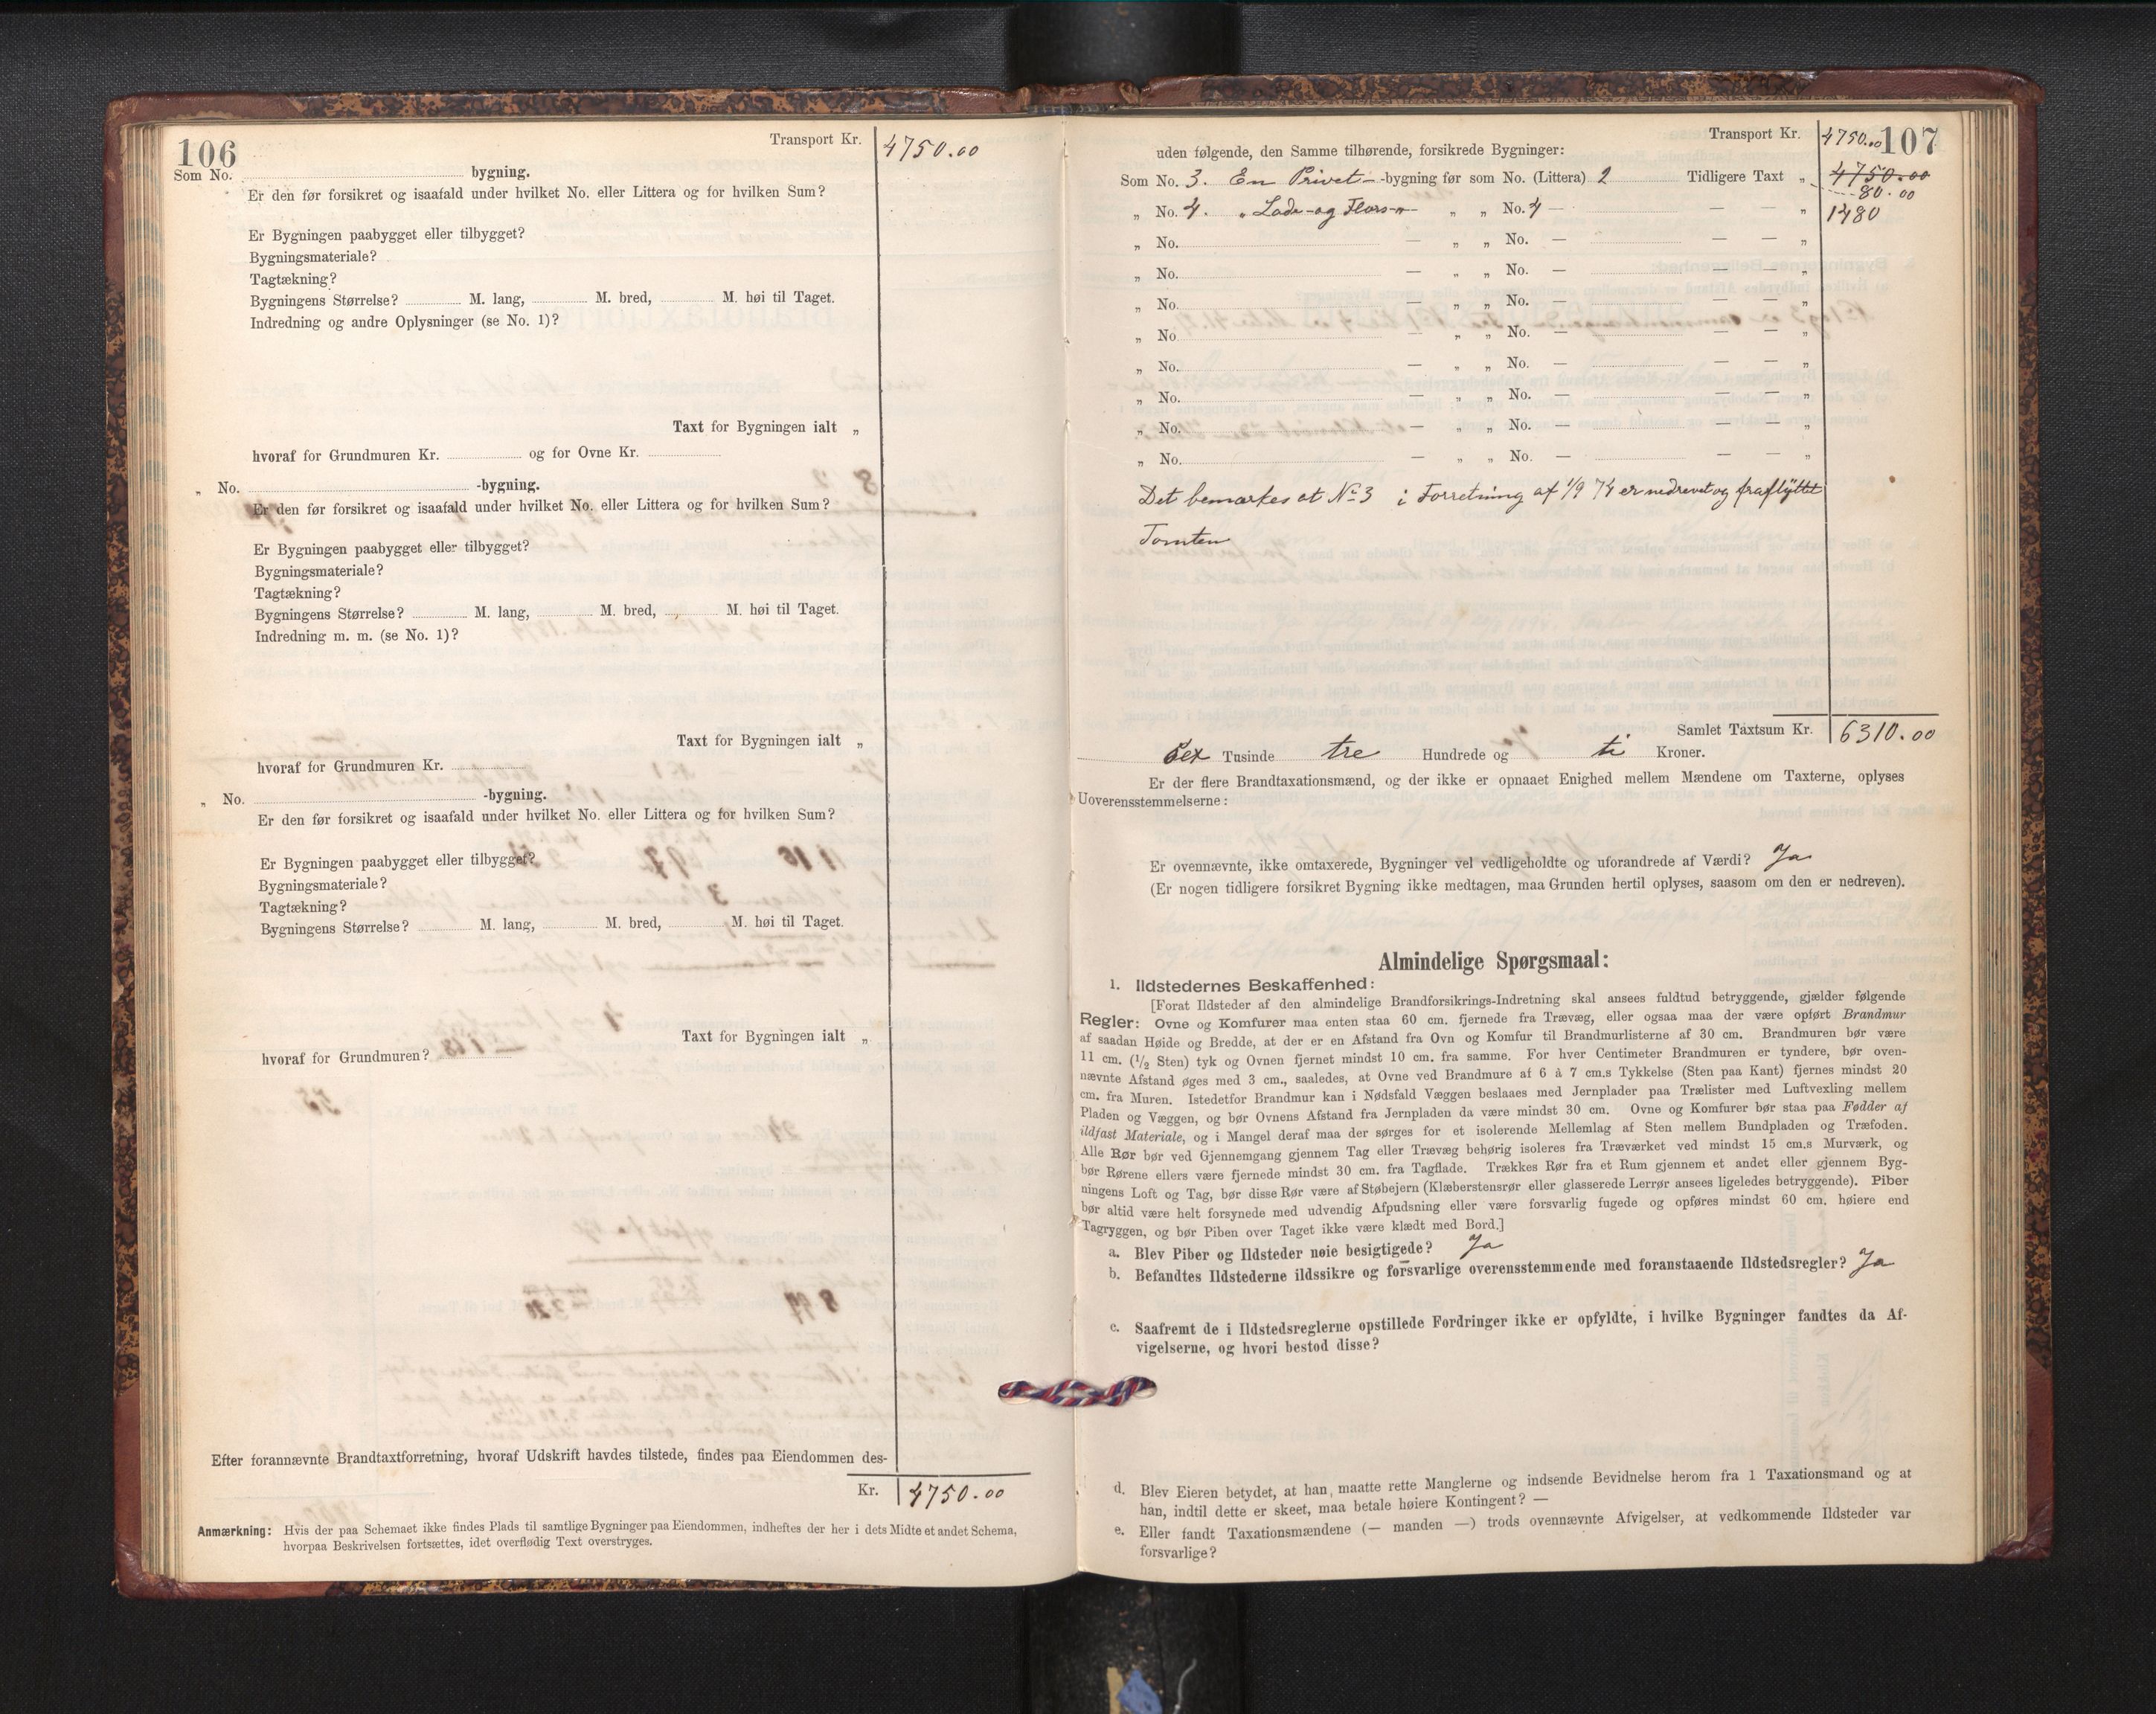 106
Transport Kr. 4750.00
Som No. bygning.
Er den før forsikret og isaafald under hvilket No. eller Littera og for hvilken Sum?
Er Bygningen paabygget eller tilbygget?
Bygningsmateriale?
Tagtækning?
Bygningens Størrelse? M. lang, M. bred, M. høi til Taget.
Indredning og andre Oplysninger (se No. 1)?
Taxt for Bygningen ialt „
hvoraf for Grundmuren Kr. og for Ovne Kr.
„ No. -bygning.
Er den før forsikret og isaafald under hvilket No. eller Littera og for hvilken Sum?
Er Bygningen paabygget eller tilbygget?
Bygningsmateriale?
Tagtækning?
Bygningens Størrelse? M. lang, M. bred, M. høi til Taget.
Indredning m. m. (se No. 1)?
Taxt for Bygningen ialt „
hvoraf for Grundmuren Kr.
„ No. -bygning.
Er den før forsikret og isaafald under hvilket No. eller Littera og for hvilken Sum?
Er Bygningen paabygget eller tilbygget?
Bygningsmateriale?
Tagtækning?
Bygningens Størrelse? M. lang, M. bred, M. høi til Taget.
Taxt for Bygningen ialt „
hvoraf for Grundmuren?
Efter forannævnte Brandtaxtforretning, hvoraf Udskrift havdes tilstede, findes paa Eiendommen des-
Kr. 4750.00
Anmærkning: Hvis der paa Schemaet ikke findes Plads til samtlige Bygninger paa Eiendommen, indheftes der her i dets Midte et andet Schema,
hvorpaa Beskrivelsen fortsættes, idet overflødig Text overstryges.
Transport Kr. 4750.00 107
uden følgende, den Samme tilhørende, forsikrede Bygninger:
Som No. 3. En Privet- -bygning før som No. (Littera) 2 Tidligere Taxt „ 4750.00
80.00
„ No. 4. „ Lade-og Flors-n- „ „ No. 4 — — — „ 1480
„ No. — „ „ No. — — — „
„ No. — „ „ No. — — — „
„ No. — „ „ No. — — — „
„ No. — „ „ No. — — — „
„ No. — „ „ No. — — — „
„ No. — „ „ No. — — — „
„ No. — „ „ No. — — — „
„ No. — „ „ No. — — — „
Det bemærkes at No 3 i Forretning af 1/9 74 er nedrevet og fraflyttet
Tomten
Samlet Taxtsum Kr. 6310.00
Sex Tusinde tre Hundrede og ti Kroner.
Er der flere Brandtaxationsmænd, og der ikke er opnaaet Enighed mellem Mændene om Taxterne, oplyses
Uoverensstemmelserne:
Er ovennævnte, ikke omtaxerede, Bygninger vel vedligeholdte og uforandrede af Værdi? Ja
(Er nogen tidligere forsikret Bygning ikke medtagen, maa Grunden hertil oplyses, saasom om den er nedreven).
Almindelige Spørgsmaal:
1. Ildstedernes Beskaffenhed:
[Forat Ildsteder af den almindelige Brandforsikrings-Indretning skal ansees fuldtud betryggende, gjælder følgende
Regler: Ovne og Komfurer maa enten staa 60 cm. fjernede fra Trævæg, eller ogsaa maa der være opført Brandmur
af saadan Høide og Bredde, at der er en Afstand fra Ovn og Komfur til Brandmurlisterne af 30 cm. Brandmuren bør være
11 cm. (1/2 Sten) tyk og Ovnen fjernet mindst 10 cm. fra samme. For hver Centimeter Brandmuren er tyndere, bør oven-
nævnte Afstand øges med 3 cm., saaledes, at Ovne ved Brandmure af 6 à 7 cm.s Tykkelse (Sten paa Kant) fjernes mindst 20
cm. fra Muren. Istedetfor Brandmur kan i Nødsfald Væggen beslaaes med Jernplader paa Trælister med Luftvexling mellem
Pladen og Væggen, og bør Ovnens Afstand fra Jernpladen da være mindst 30 cm. Ovne og Komfurer bør staa paa Fødder af
ildfast Materiale, og i Mangel deraf maa der sørges for et isolerende Mellemlag af Sten mellem Bundpladen og Træfoden.
Alle Rør bør ved Gjennemgang gjennem Tag eller Trævæg behørig isoleres fra Træværket ved mindst 15 cm.s Murværk, og
bør Rørene ellers være fjernede mindst 30 cm. fra Tagflade. Trækkes Rør fra et Rum gjennem et andet eller gjennem Byg-
ningens Loft og Tag, bør disse Rør være af Støbejern (Klæberstensrør eller glasserede Lerrør ansees ligeledes betryggende). Piber
bør altid være helt forsynede med udvendig Afpudsning eller være forsvarlig fugede og opføres mindst 60 cm. høiere end
Tagryggen, og bør Piben over Taget ikke være klædt med Bord.]
a. Blev Piber og Ildsteder nøie besigtigede? Ja
b. Befandtes Ildstederne ildssikre og forsvarlige overensstemmende med foranstaaende Ildstedsregler? Ja
c. Saafremt de i Ildstedsreglerne opstillede Fordringer ikke er opfyldte, i hvilke Bygninger fandtes da Af-
vigelserne, og hvori bestod disse?
d. Blev Eieren betydet, at han maatte rette Manglerne og indsende Bevidnelse herom fra 1 Taxationsmand og at
han, indtil dette er skeet, maa betale høiere Kontingent? —
e. Eller fandt Taxationsmændene (— manden —) trods ovennævnte Afvigelser, at vedkommende Ildsteder var
forsvarlige?